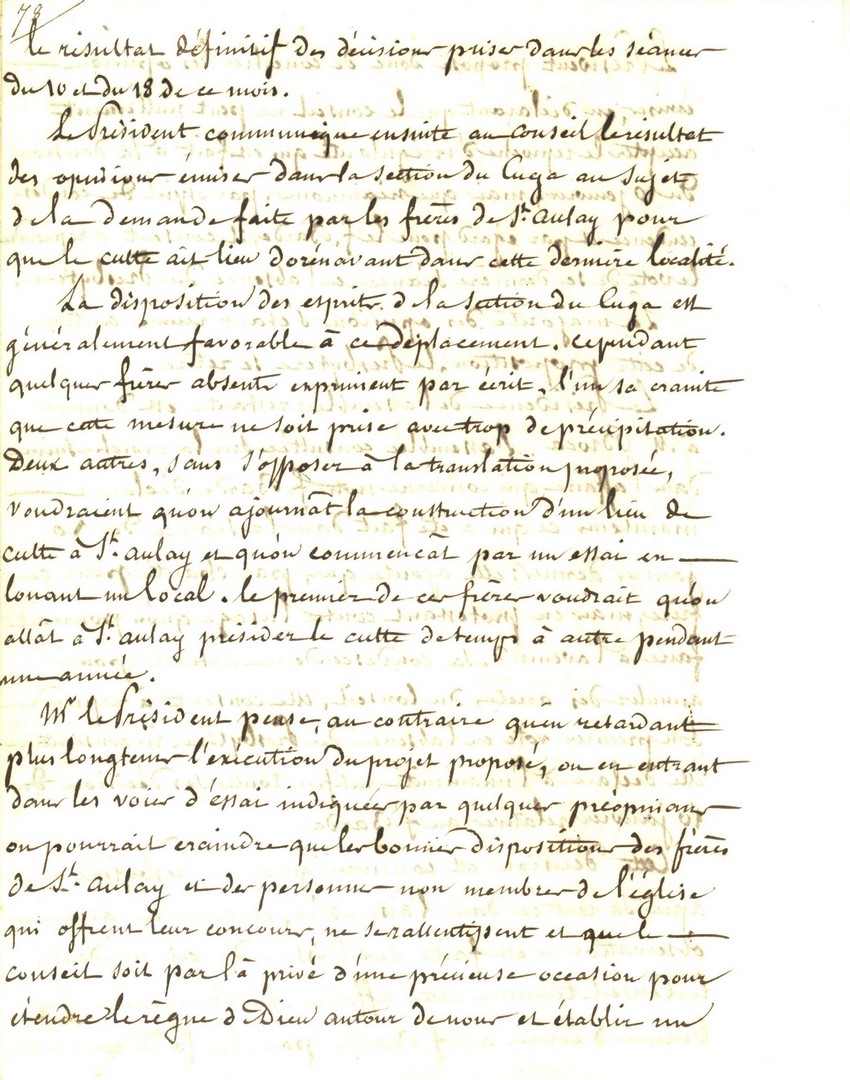 78
le résultat définitif des décisions prises dans les séances
du 10 et du 18 de ce mois.
Le Président communique ensuite au conseil le résultat
des opinions émises dans la section du Cuga au sujet
de la demande faite par les frères de St. Aulay pour
que le culte ait lieu dorénavant dans cette dernière localité.
La disposition des esprits de la section du Cuga est
généralement favorable à ce déplacement. cependant
quelques frères absents expriment par écrit, l'un sa crainte
que cette mesure ne soit prise avec trop de précipitation.
Deux autres, sans s'opposer à la translation proposée,
voudraient qu'on ajournât la construction d'un lieu de
culte à St. Aulay et qu'on commencât par un essai en
louant un local. le premier de ces frères voudrait qu'on
allât à St. Aulay présider le culte de temps à autre pendant
une année.
Mr le Président pense, au contraire qu'en retardant
plus longtems l'exécution du projet proposé, ou en entrant
dans les voies d'éssai indiquées par quelques préopinans
on pourrait craindre que les bonnes dispositions des frères
de St. Aulay et des personnes non membres de l'église
qui offrent leur concours, ne se rallentissent et que le
conseil soit par là privé d'une précieuse occasion pour
étendre le règne de Dieu autour de nous et établir un